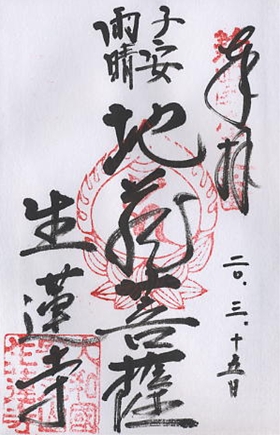 奉拝
二〇.三.十五日
子安
雨晴
地蔵菩薩
生蓮寺